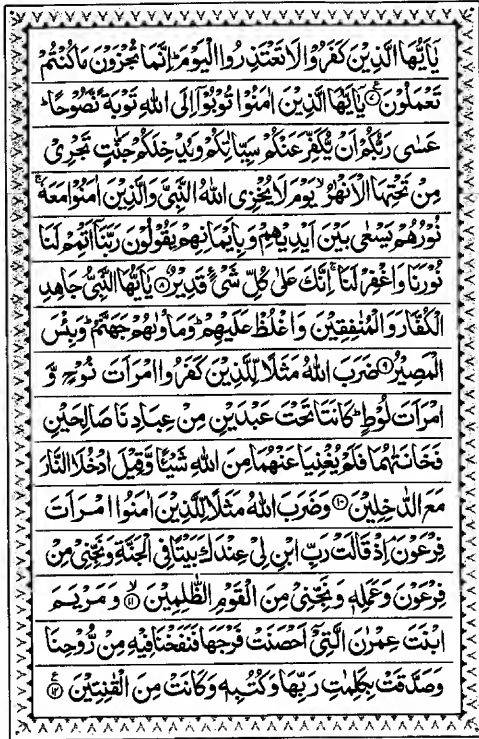 يٰۤاَيُّهَا الَّذِيْنَ كَفَرُوْا لَا تَعْتَذِرُوا الْيَوْمَ ؕ اِنَّمَا تُجْزَوْنَ مَا كُنْتُمْ
تَعْمَلُوْنَ ۷ۧ يٰۤاَيُّهَا الَّذِيْنَ اٰمَنُوْا تُوْبُوْۤا اِلَى اللّٰهِ تَوْبَةً نَّصُوْحًا ؕ
عَسٰى رَبُّكُمْ اَنْ يُّكَفِّرَ عَنْكُمْ سَيِّاٰتِكُمْ وَيُدْخِلَكُمْ جَنّٰتٍ تَجْرِيْ
مِنْ تَحْتِهَا الْاَنْهٰرُ ۙ يَوْمَ لَا يُخْزِى اللّٰهُ النَّبِيَّ وَالَّذِيْنَ اٰمَنُوْا مَعَهٗ ۚ
نُوْرُهُمْ يَسْعٰى بَيْنَ اَيْدِيْهِمْ وَبِاَيْمَانِهِمْ يَقُوْلُوْنَ رَبَّنَاۤ اَتْمِمْ لَنَا
نُوْرَنَا وَاغْفِرْ لَنَا ۚ اِنَّكَ عَلٰى كُلِّ شَيْءٍ قَدِيْرٌ ۸ يٰۤاَيُّهَا النَّبِيُّ جَاهِدِ
الْكُفَّارَ وَالْمُنٰفِقِيْنَ وَاغْلُظْ عَلَيْهِمْ ؕ وَمَاْوٰىهُمْ جَهَنَّمُ ؕ وَبِئْسَ
الْمَصِيْرُ ۹ ضَرَبَ اللّٰهُ مَثَلًا لِّلَّذِيْنَ كَفَرُوا امْرَاَتَ نُوْحٍ وَّ
امْرَاَتَ لُوْطٍ ؕ كَانَتَا تَحْتَ عَبْدَيْنِ مِنْ عِبَادِنَا صَالِحَيْنِ
فَخَانَتٰهُمَا فَلَمْ يُغْنِيَا عَنْهُمَا مِنَ اللّٰهِ شَيْـًٔا وَّقِيْلَ ادْخُلَا النَّارَ
مَعَ الدّٰخِلِيْنَ ۱۰ وَضَرَبَ اللّٰهُ مَثَلًا لِّلَّذِيْنَ اٰمَنُوا امْرَاَتَ
فِرْعَوْنَ ۘ اِذْ قَالَتْ رَبِّ ابْنِ لِيْ عِنْدَكَ بَيْتًا فِي الْجَنَّةِ وَنَجِّنِيْ مِنْ
فِرْعَوْنَ وَعَمَلِهٖ وَنَجِّنِيْ مِنَ الْقَوْمِ الظّٰلِمِيْنَ ۙ ۱۱ وَمَرْيَمَ
ابْنَتَ عِمْرٰنَ الَّتِيْۤ اَحْصَنَتْ فَرْجَهَا فَنَفَخْنَا فِيْهِ مِنْ رُّوْحِنَا
وَصَدَّقَتْ بِكَلِمٰتِ رَبِّهَا وَكُتُبِهٖ وَكَانَتْ مِنَ الْقٰنِتِيْنَ ۱۲ۧ